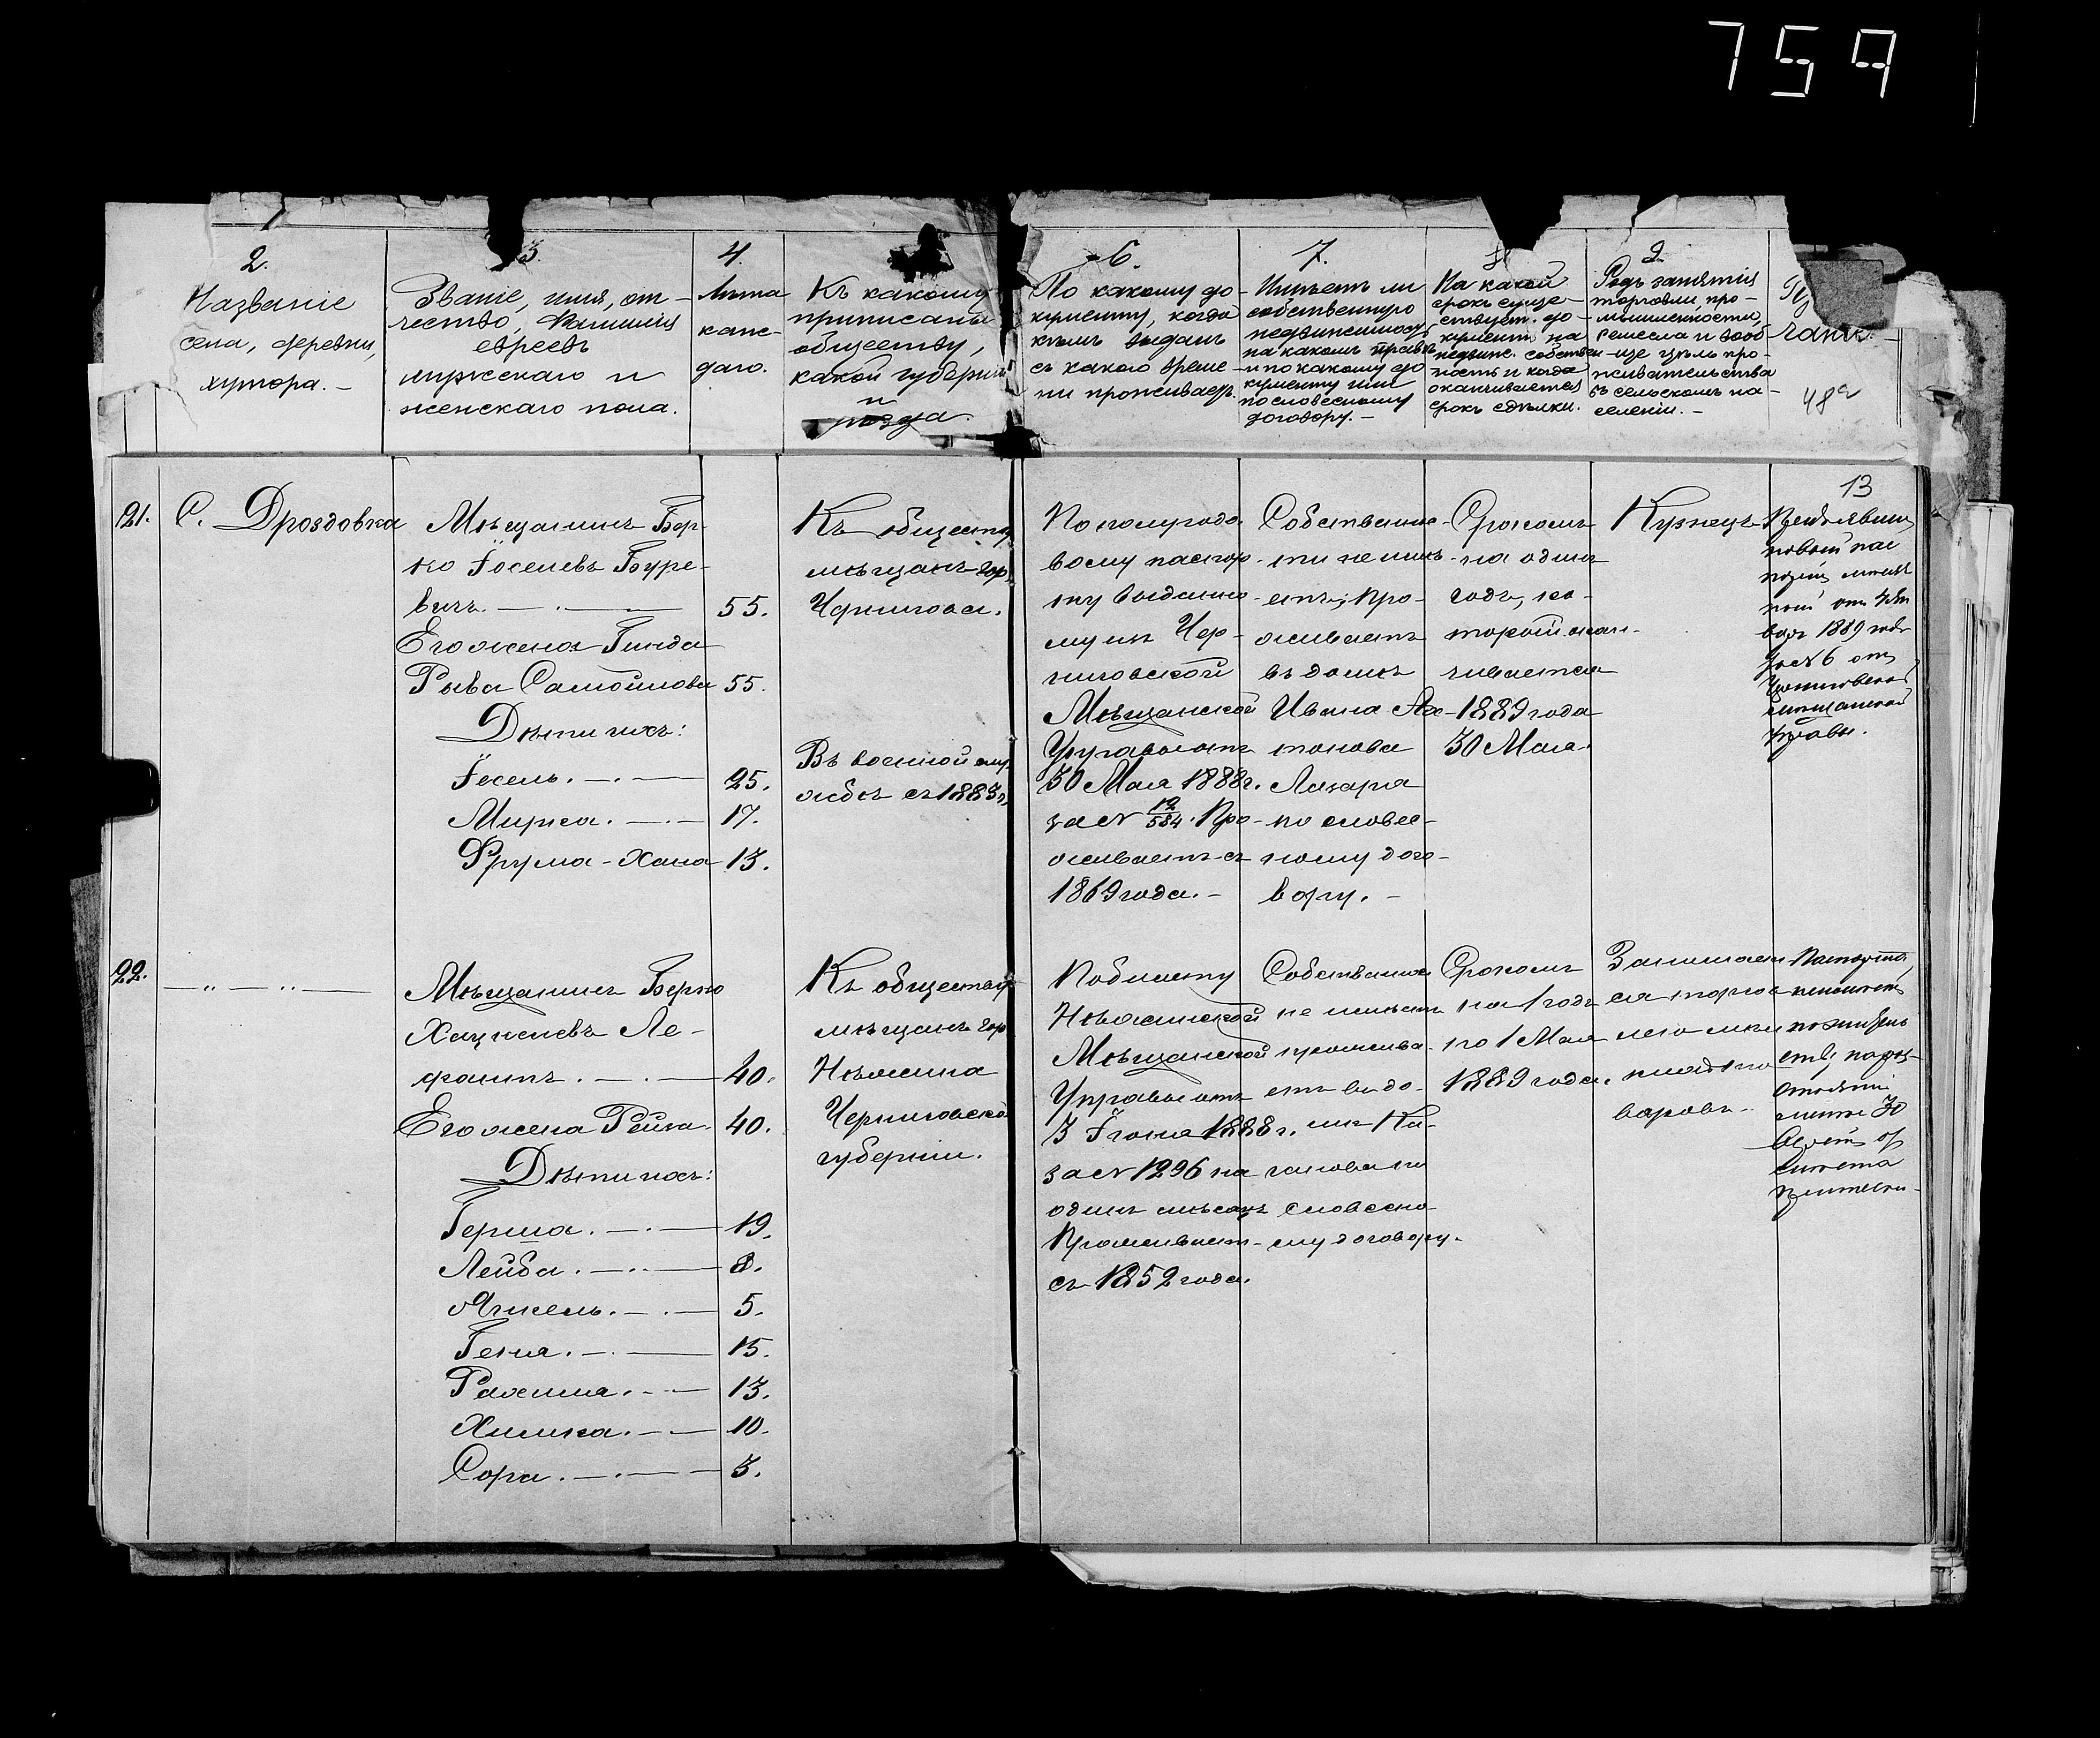 759
2.
Названіе
села, деревни,
хутора. –
3.
Званіе, имя, от-
чество, Фамилія
евреевъ
мужскаго и
женскаго пола.
4.
Лѣта
каж-
даго.
Къ какому
приписаны
обществу,
какой губерніи
и
уѣзда.
6.
По какому до-
кументу, когда
кѣмъ выданъ
съ какого време-
ни проживаетъ.
7.
Имѣетъ ли
собственную
недвижимость
на какомъ правѣ
и по какому до
кументу или
по словесному
договору. –
На какой
срокъ суще-
ствует. до-
кументъ на
недвиж. собствен-
ность и когда
оканчивается
срокъ сдѣлки.
9.
Родъ занятія
торговли, про-
мышленности,
ремесла и вооб-
ще цѣль про-
живательства
въ сельскомъ на-
селеніи. –
48
13
21.
С. Дроздовка
Мѣщанинъ Бер-
ко Іоселевъ Буре-
вичъ. — 55.
Его жена Гинда
Рыва Самойлова 55.
Дѣти ихъ:
Іосель. — 25.
Мирка. — 17.
Фрума-Хана 13.
Къ обществу
мѣщанъ гор.
Чернигова.
Въ военной слу
жбѣ съ 1883 г.
По полугодо
вому паспор-
ту выданно-
му изъ Чер-
ниговской
Мѣщанской
Управы отъ
30 Мая 1888 г.
за № 12/584. Про-
живаетъ съ
1869 года. –
Собственнос-
ти не имѣ-
етъ; про-
живаетъ
въ домѣ
Ивана
Лазаря
по словес-
ному дого-
вору. –
Срокомъ
на одинъ
годъ, ко-
торой окан-
чивается
1889 года
30 Мая.
Кузнецъ
новый пас
1889 года
отъ
Черниговской
мѣщанской
Управы.
22.
— „ — „ —
Мѣщанинъ Берко
Хацкелевъ Ле-
фантъ. — 40.
Его жена Рейза 40.
Дѣти ихъ:
Герша. — 19.
Лейба. — 8.
Янкель. — 5.
Геня. — 15.
Рахиля. — 13.
Химка. — 10.
Сора. — 3.
Къ обществу
мѣщанъ гор
Нѣжина
Черниговской
губерніи.
По билету
Нѣжинской
Мѣщанской
Управы отъ
3 Іюня 1888 г.
за № 1296 на
одинъ мѣсяцъ
Проживаетъ
съ 1852 года.
Собственнос
не имѣетъ
прожива-
етъ въ до-
мѣ Ка-
занова по
словесно-
му договору.
Срокомъ
на 1 годъ
по 1 Мая
1889 года.
Занимает
ся торгов
лею мел
кихъ то
варовъ.
Паспорта